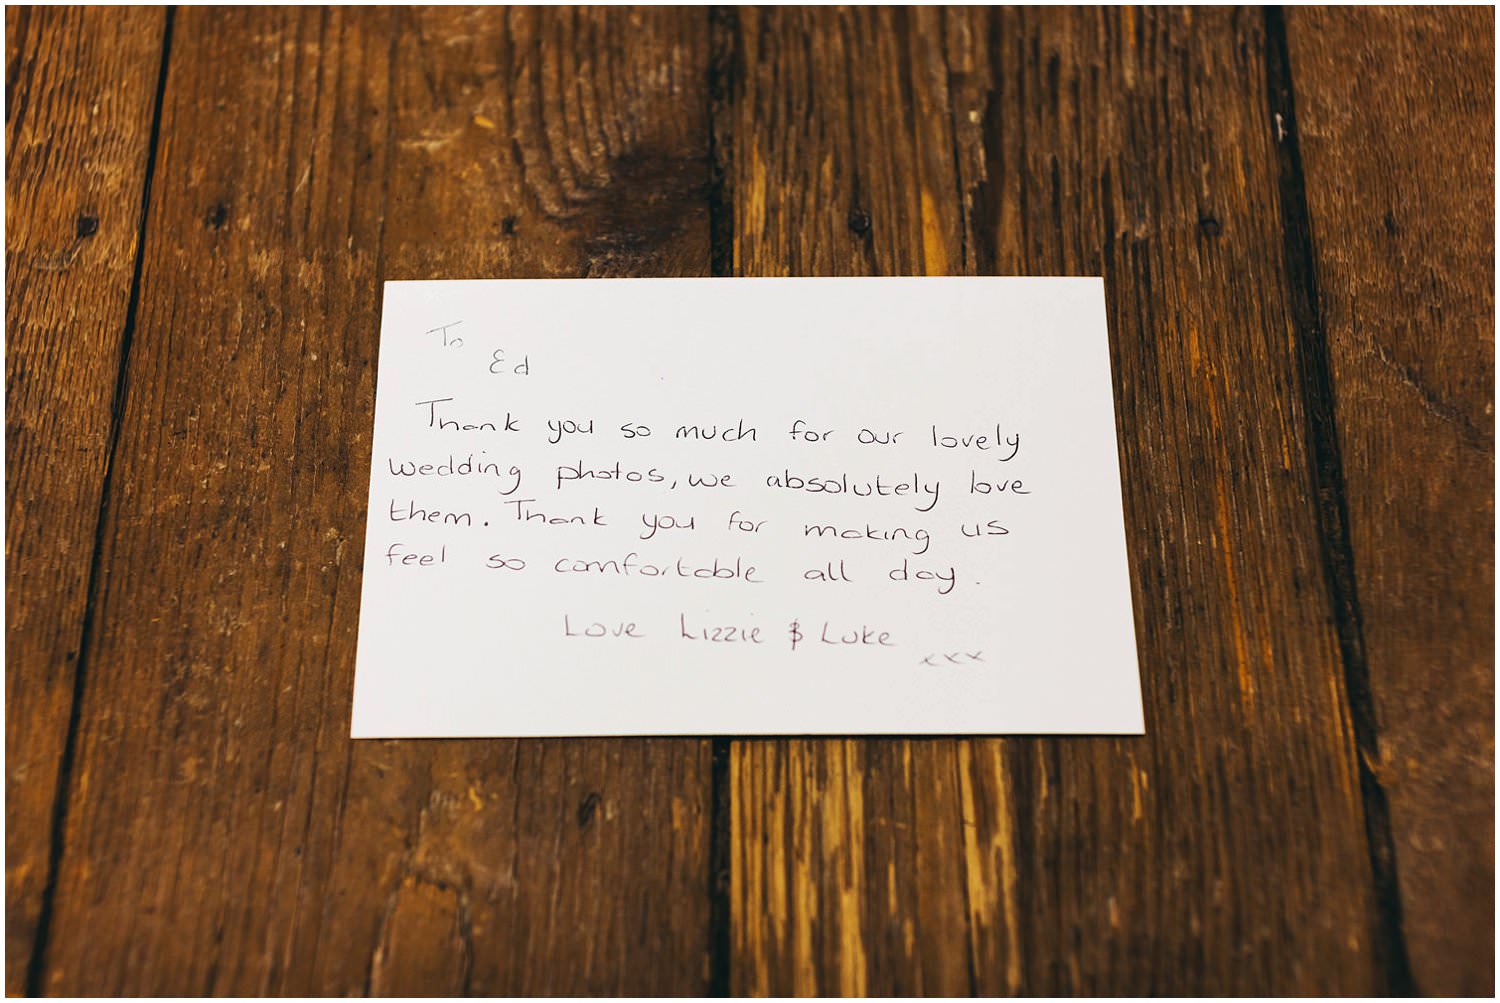 To
Ed
Thank you so much for our lovely
wedding photos, we absolutely love
them. Thank you for making us
feel so comfortable all day.
Love Lizzie & Luke
xxx